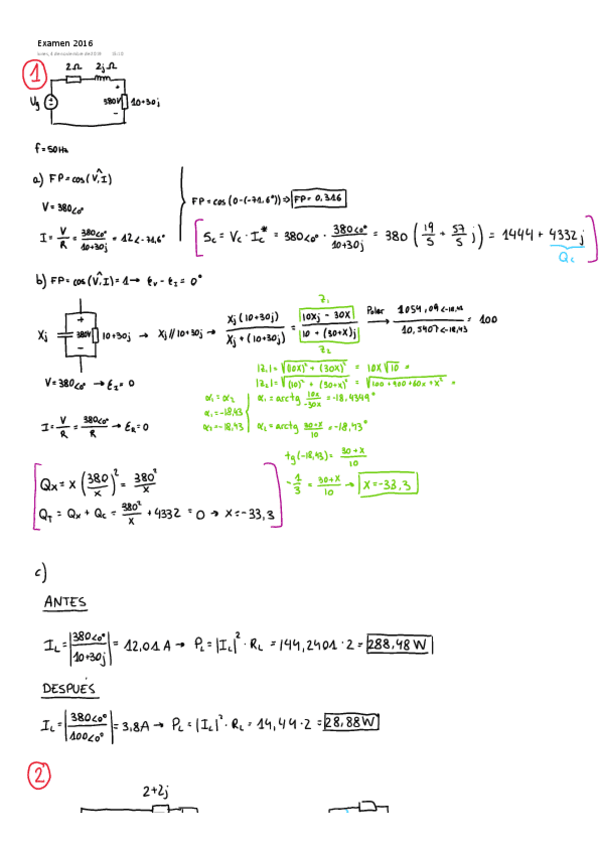 Examen 2016
1
2Ω 2jΩ
Vg 380V 10+30j
f=50Hz
a) FP=cos(V,I)
V=380<0°
I = V/R = 380<0°/10+30j = 12<-71,6°
FP=cos(0-(-71,6°)) ⇒ FP=0,316
Sc = Vc · Ic* = 380<0° · 380<0°/10+30j = 380 (19/5 + 57/5 j) = 1444 + 4332j
Qc
b) FP=cos(V,I)=1 → εv - εI = 0°
Xj 380V 10+30j → Xj//10+30j → Xj(10+30j)/Xj+(10+30j) = 10Xj - 30X/10+(30+X)j Polar → 1054,09<-18,43/10,5407<-18,43 = 100
Z1
Z2
V=380<0° → εI=0
|Z1|=√(10X)²+(30X)² = 10X√10
|Z2|=√(10)²+(30+X)² = √100+900+60x+X²
α1=α2
α1=-18,43
α2=-18,43
α1=arctg 10x/-30x = -18,4349°
α2=arctg 30+X/10 = -18,43°
I = V/R = 380<0°/R → εR=0
tg(-18,43) = 30+X/10
-1/3 = 30+X/10 → X=-33,3
Qx = x (380/x)² = 380²/x
QT = Qx + Qc = 380²/x + 4332 = 0 → x=-33,3
c)
ANTES
IL = |380<0°/10+30j| = 12,01 A → PL = |IL|² · RL = 144,2401 · 2 = 288,48 W
DESPUÉS
IL = |380<0°/100<0°| = 3,8A → PL = |IL|² · RL = 14,44 · 2 = 28,88W
2
2+2j